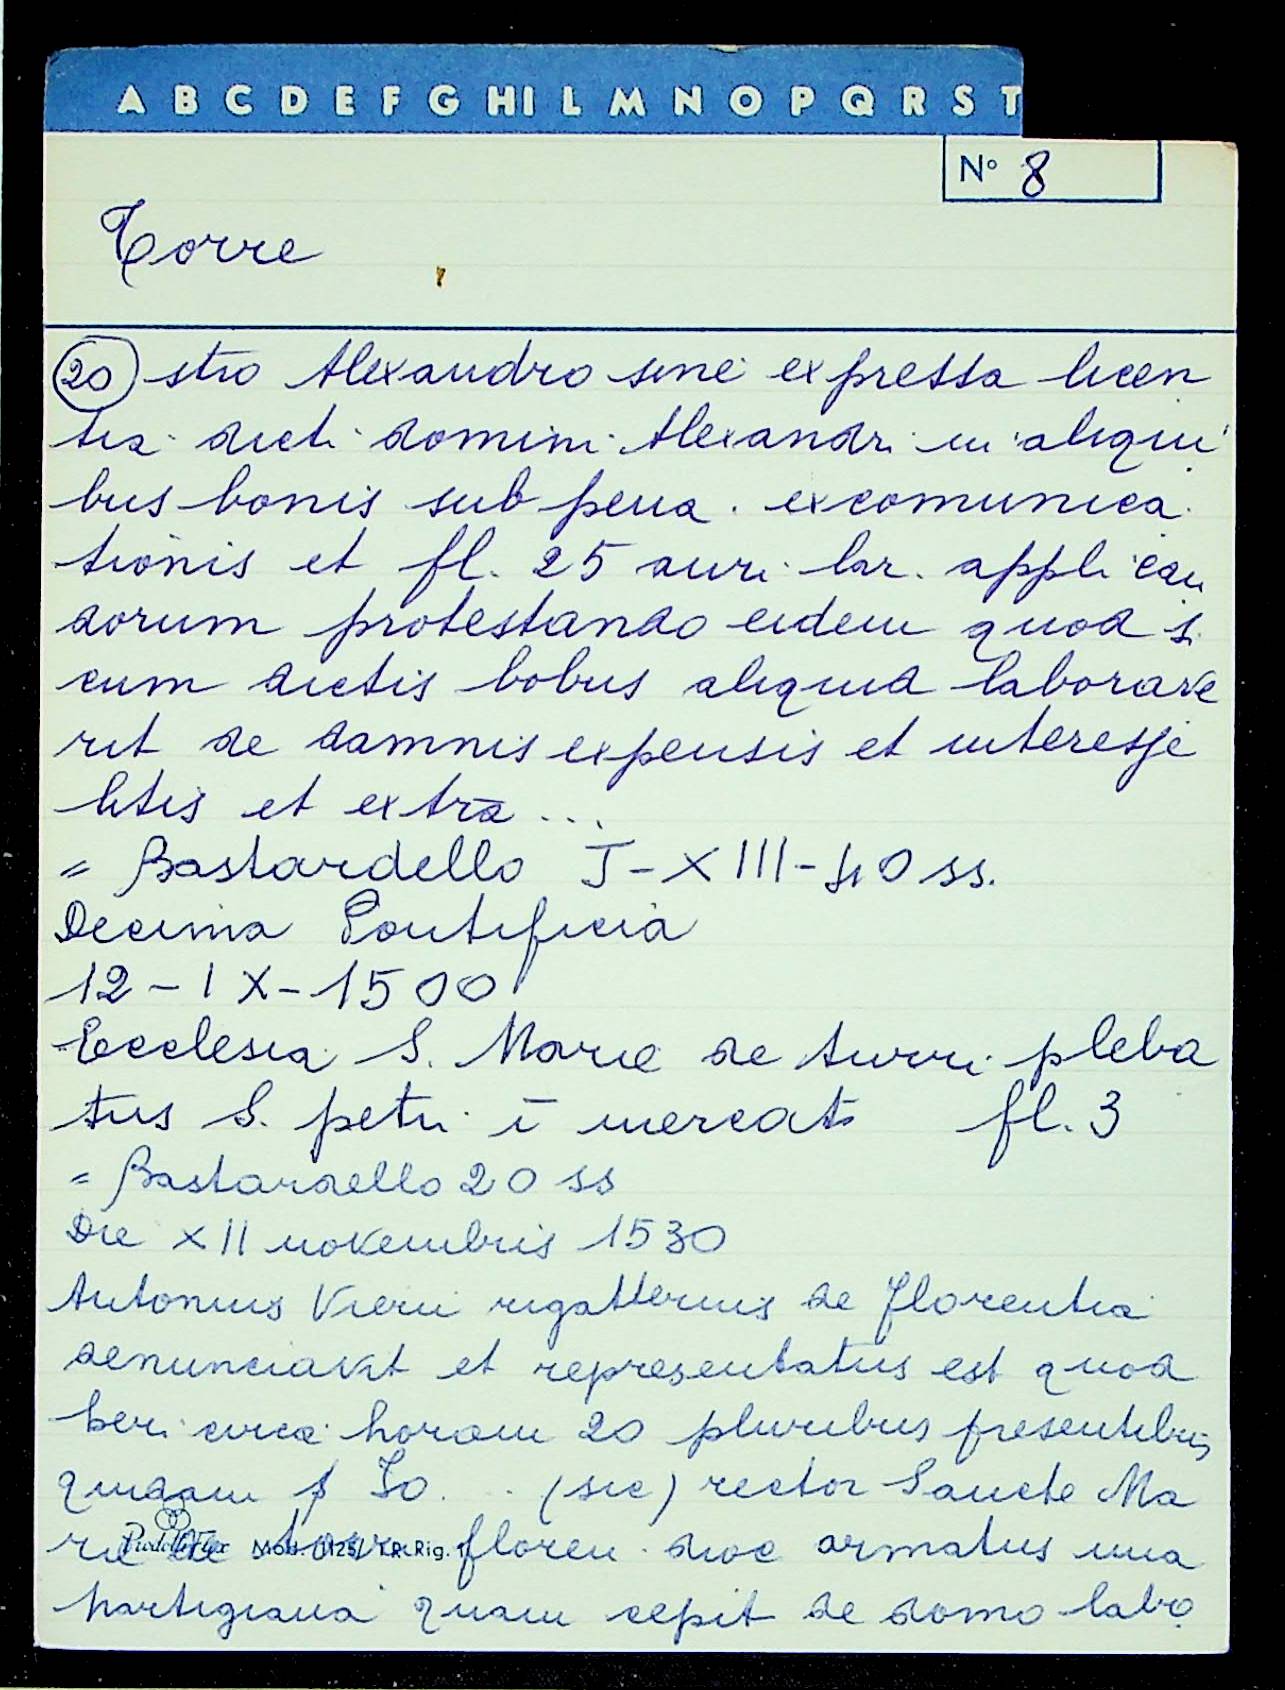 A B C D E F G HI L M N O P Q R S T
N° 8
Torre
20 stro Alexandro sine expressa licen
tia dicti domini Alexandri in aliqui
bus bonis sub pena excomunica
tionis et fl. 25 auri lar. applican
dorum protestando eidem quod si
cum dictis bobus aliquid laborave
rit de damnis expensis et interesse
litis et extra ...
= Bastardello I-XIII-40 ss.
Decima Pontificia
12-IX-1500
Ecclesia S. Marie de turri pleba
tus S. petri ī mercato fl. 3
= Bastardello 20 ss
Die XII novembris 1530
Antonius Vieri rigatterius de Florentia
denunciavit et representatus est quod
heri circa horam 20 pluribus presentibus
quidam Jo. .. (sic) rector Sancte Ma
rie de floren. dioc armatus una
partigiana quam cepit de domo labo